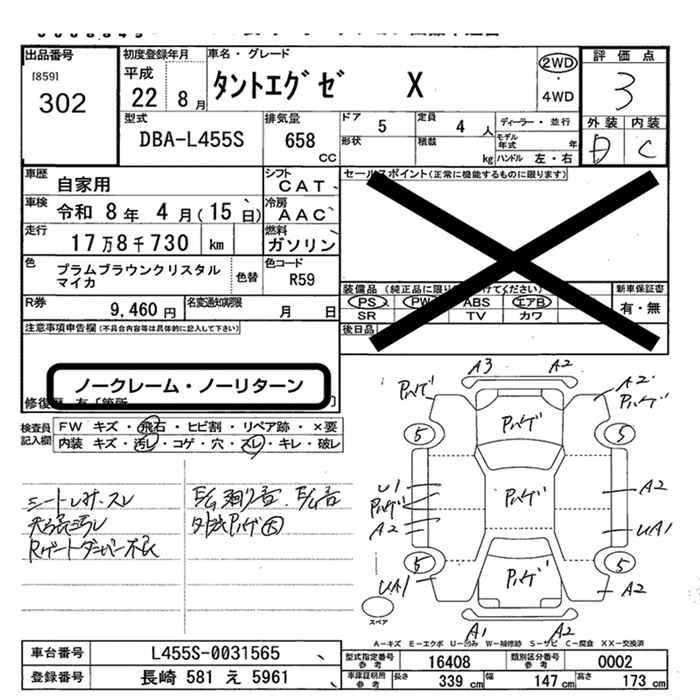 出品番号 初度登録年月 車名・グレード 評価点
[859] 302 平成 22 8月 タントエグゼ X 2WD・4WD 3
型式 排気量 ドア 5 定員 4人 ディーラー・並行 外装 内装
DBA-L455S 658 CC 形状 積載 kg モデル年式 年 ハンドル 左・右 C
車歴 自家用 シフト CAT セールスポイント(正常に機能するものに限ります)
車検 令和 8年 4月(15日) 冷房 AAC
走行 17万8千730 km 燃料 ガソリン
色 プラムブラウンクリスタルマイカ 色替 色コード R59 装備品 新車保証書
PS PW ABS エアB 有・無
R券 9,460円 名変通知期限 月 日 SR TV カワ
注意事項申告欄(不具合内容等は具体的に記入して下さい) 後日品
ノークレーム・ノーリターン
修復歴
検査員記入欄 FW キズ・飛石・ヒビ割・リペア跡・×要
内装 キズ・汚レ・コゲ・穴・スレ・キレ・破レ
A3 A2
A2
5 5
U1 A2
A2 UA1
5 5
UA1 A2
A1 A2
シートレザースレ
天張汚レ
Rゲートダンパー不良
スペア
A-キズ E-エクボ U-凹み W-補修跡 S-サビ C-腐食 XX-交換済
車台番号 L455S-0031565 型式指定番号 参考 16408 類別区分番号 参考 0002
登録番号 長崎 581 え 5961 車庫証明用 参考 長さ 339 cm 幅 147 cm 高さ 173 cm